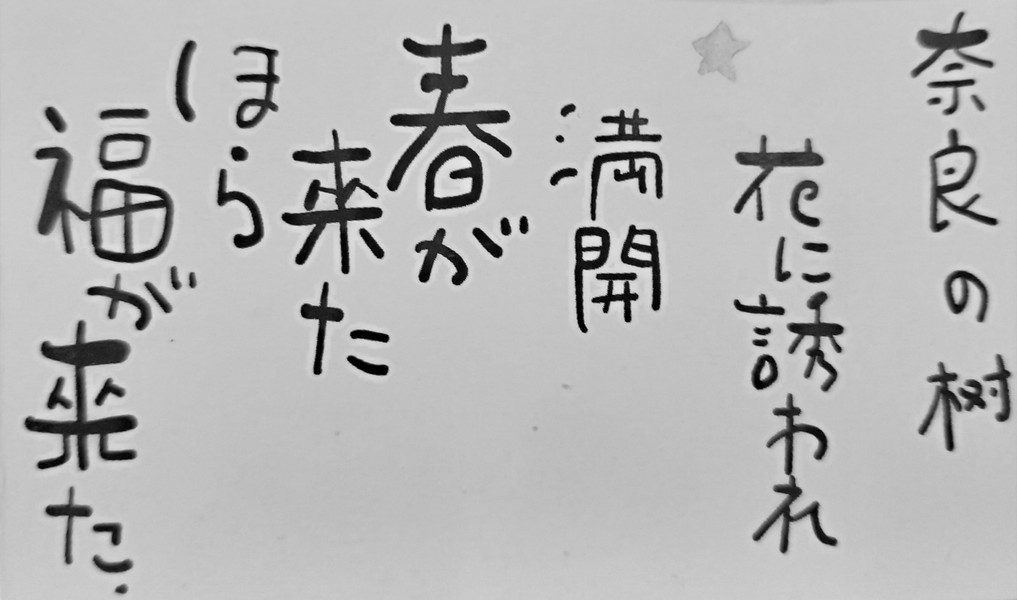 奈良の樹
花に誘われ
満開
春が
来た
ほら
福が来た.